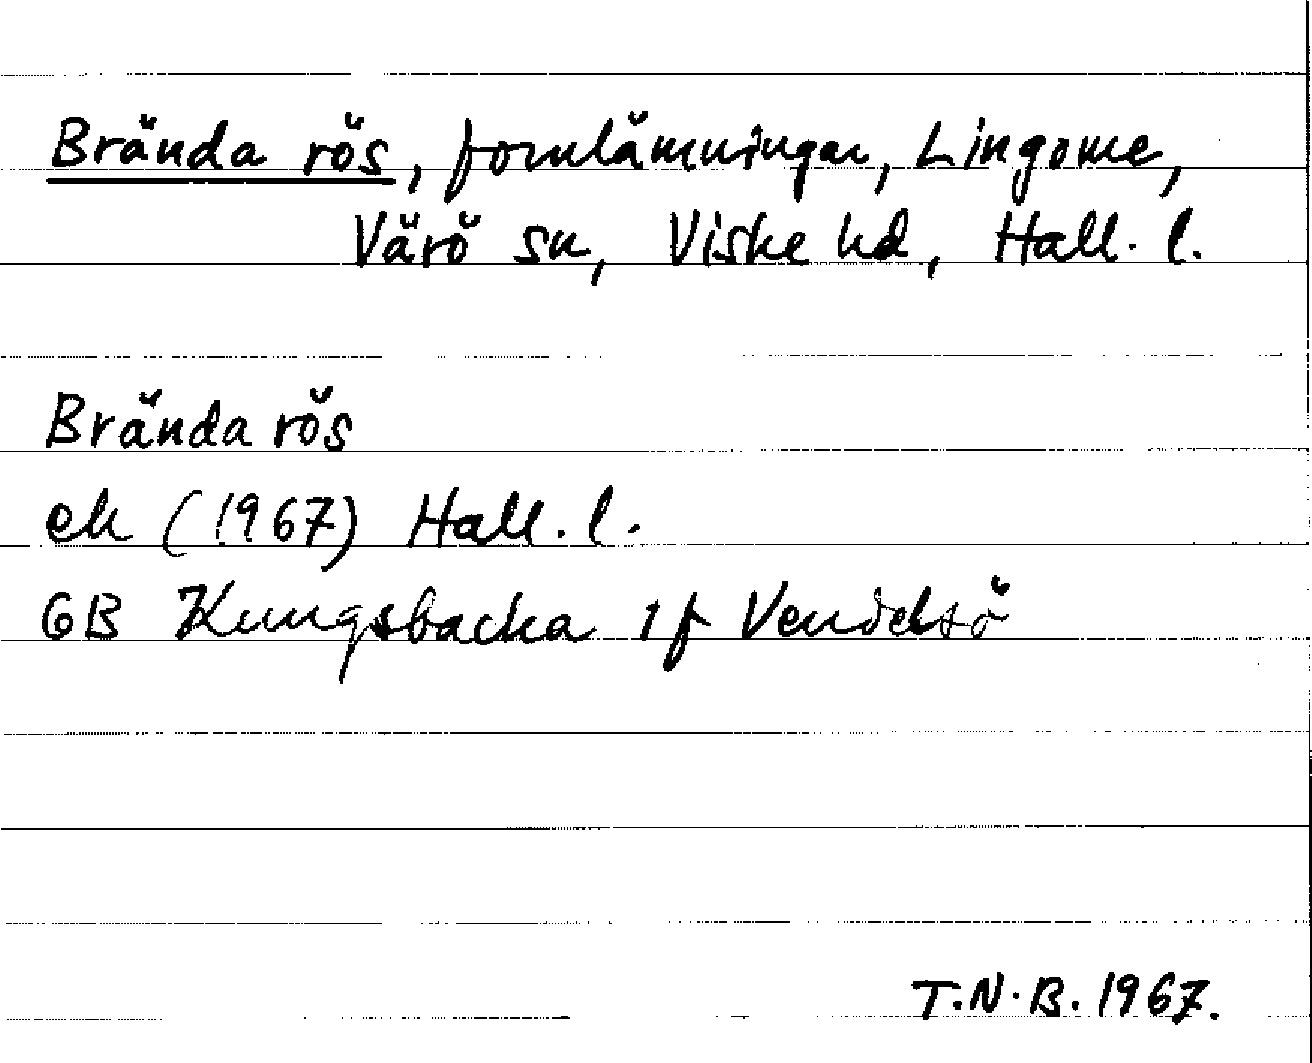 Brända rös, fornlämningar, Lingome,
Värö sn, Viske hd, Hall. l.
Brända rös
ek (1967) Hall. l.
GB Kungsbacka 1f Vendelsö
T.N.B. 1967.